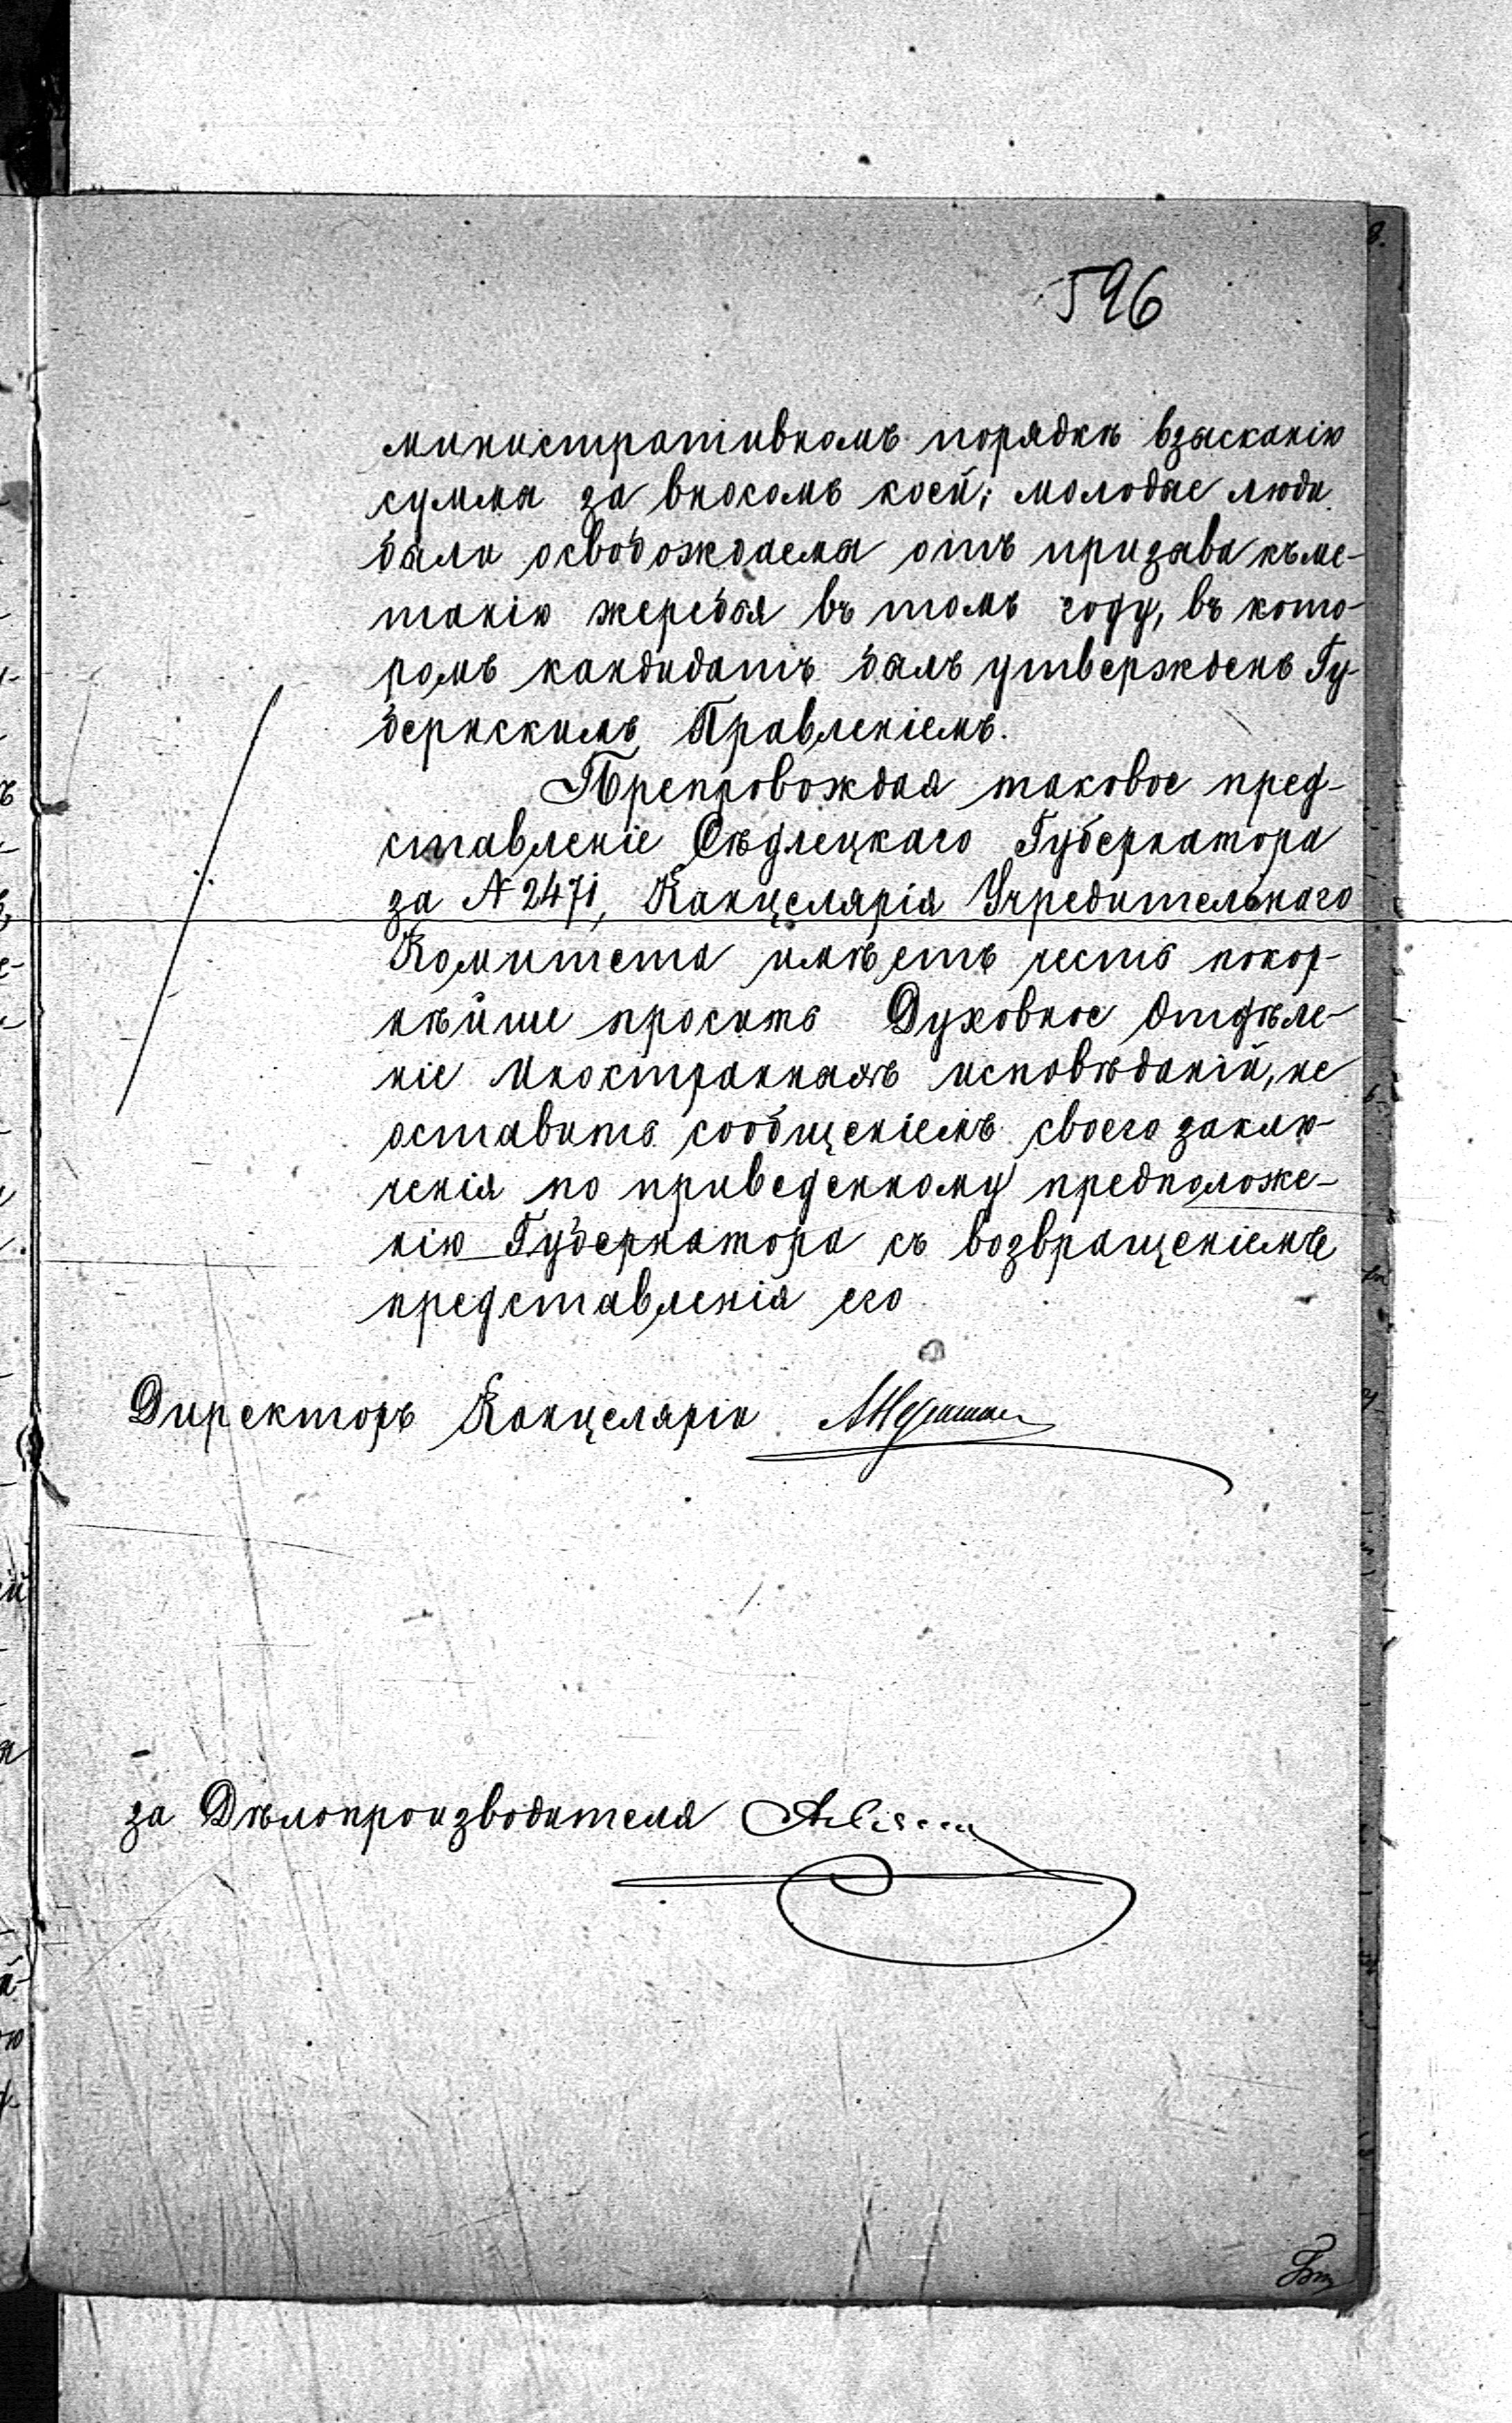 596
министративномъ порядкѣ взысканію
суммы за вносомъ коей; молодые люди
были освобождаемы отъ призыва къ ме-
танію жеребья въ томъ году, въ кото-
ромъ кандидатъ былъ утвержденъ Гу-
бернскимъ Правленіемъ.
Препровождая таковое пред-
ставленіе Сѣдлецкаго Губернатора
за № 2471, Канцелярія Учредительнаго
Комитета имѣетъ честь покор-
нѣйше просить Духовное Отдѣле-
ніе Иностранныхъ исповѣданій, не
оставить сообщеніемъ своего заклю-
ченія по приведенному предположе-
нію Губернатора съ возвращеніемъ
представленія его
Директоръ Канцеляріи
за Дѣлопроизводителя